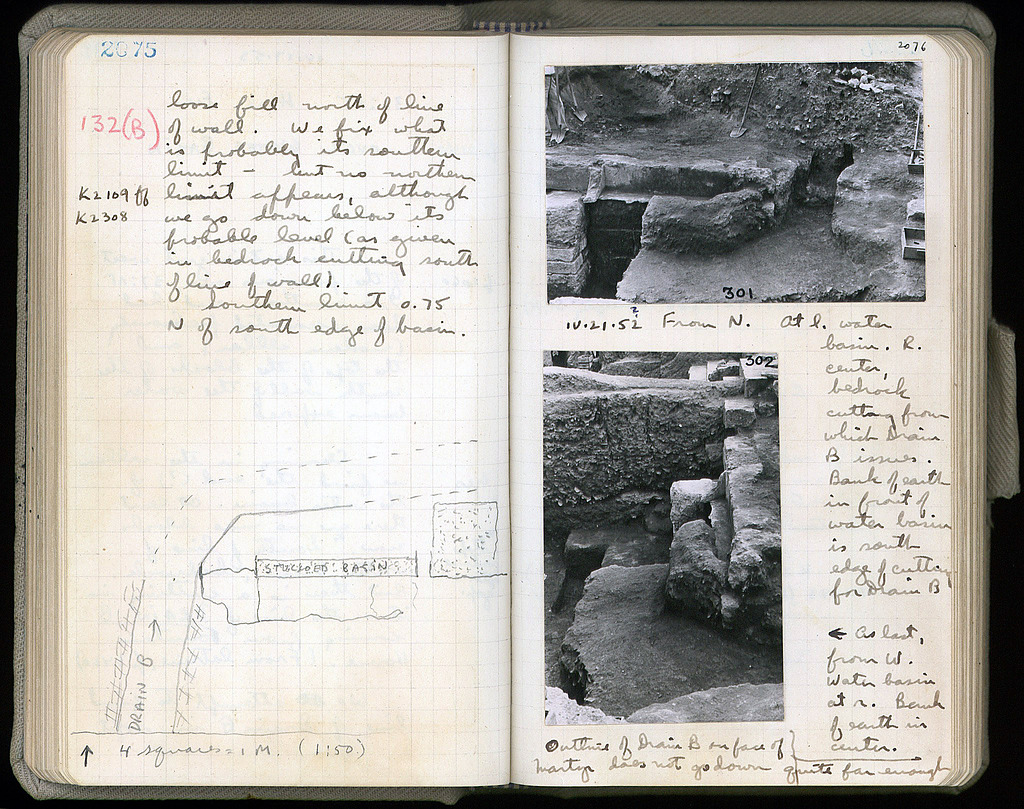 2075
loose fill north of line
132(B)
of wall. We fix what
is probably its southern
limit - but no northern
K2109 ff
limit appears, although
K2308
we go down below its
probable level (as given
in bedrock cutting south
of line of wall).
Southern limit 0.75
N of south edge of basin.
STUCCOED BASIN
DRAIN B
4 squares = 1 M. (1:50)
2076
301
IV.21.52 From N. At l. water
basin. R.
center,
bedrock
cutting from
which Drain
B issues.
Bank of earth
in front of
water basin
is south
edge of cutting
for Drain B
302
← As last,
from W.
Water basin
at r. Bank
of earth in
center.
Outline of Drain B on face of
martyr does not go down quite far enough